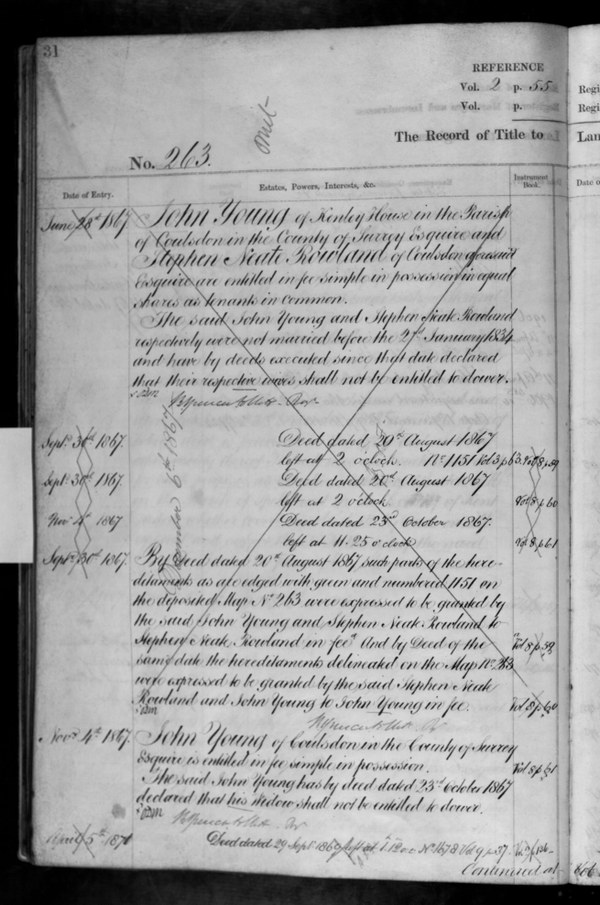 31
REFERENCE
Vol. 2 p. 55
Vol. p.
omit
The Record of Title to
Lan
Regi
Regi
No. 263.
Date of Entry.
Estates, Powers, Interests, &c.
Instrument Book.
Date o
June 28th 1867
John Young of Kenley House in the Parish
of Coulsdon in the County of Surrey Esquire and
Stephen Neate Rowland of Coulsdon aforesaid
Esquire are entitled in fee simple in possession in equal
shares as tenants in common.
The said John Young and Stephen Neate Rowland
respectively were not married before the 2nd January 1834
and have by deeds executed since that date declared
that their respective wives shall not be entitled to dower.
Sept. 30th 1867.
Deed dated 20th August 1867
left at 2 oclock. No. 1151 Vol 3 p 63. Vol 8 p 59
Sept. 30th 1867.
Deed dated 20th August 1867
left at 2 oclock
Vol 8 p 60
Nov. 4th 1867
Deed dated 23rd October 1867.
left at 11.25 oclock
Vol 8 p 61
Sept. 30th 1867.
By Deed dated 20th August 1867 such parts of the here-
ditaments as are edged with green and numbered 1151 on
the deposited Map No. 263 were expressed to be granted by
the said John Young and Stephen Neate Rowland to
Stephen Neate Rowland in fee. And by Deed of the
Vol 8 p 59
same date the hereditaments delineated on the Map No. 263
were expressed to be granted by the said Stephen Neate
Rowland and John Young to John Young in fee.
Vol 8 p 60
Novr. 4th 1867.
John Young of Coulsdon in the County of Surrey
Esquire is entitled in fee simple in possession.
Vol 8 p 61
The said John Young has by deed dated 23rd October 1867
declared that his widow shall not be entitled to dower.
April 5th 1870
Deed dated 29 Sept 1869 left at No. 1678 Vol 4 p 37.
Continued at